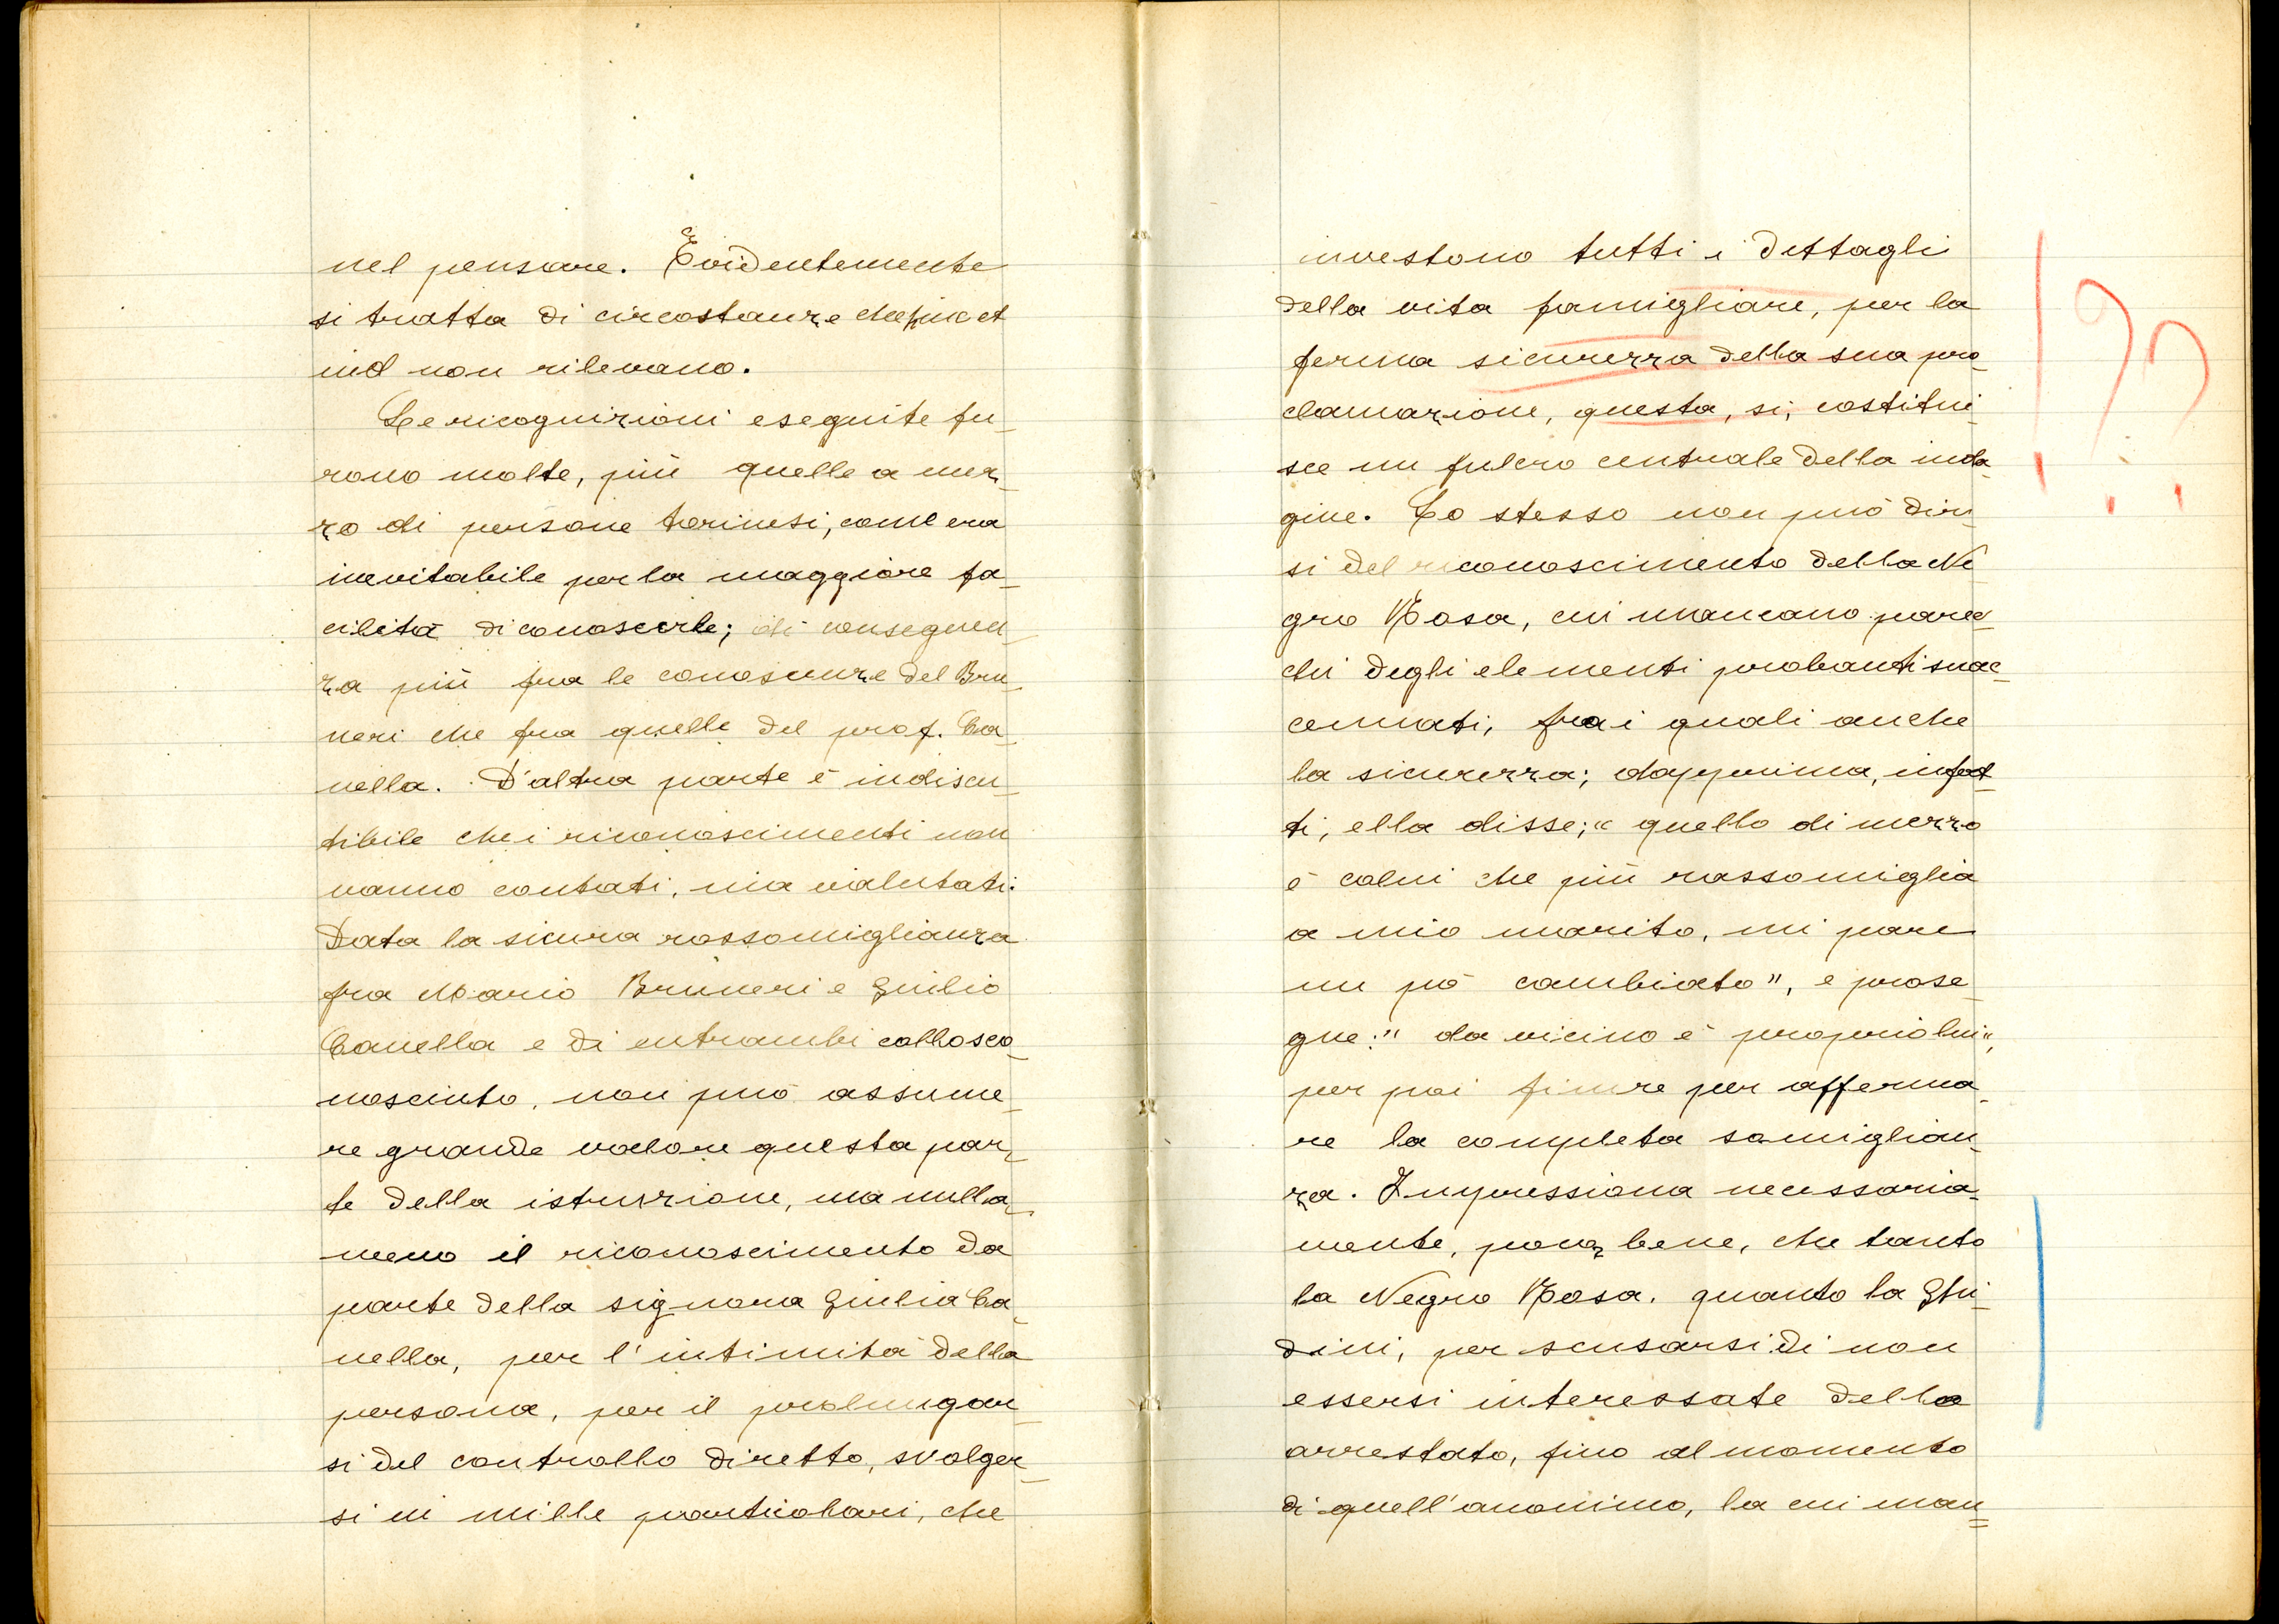 nel pensare. Evidentemente
si tratta di circostanze che hinc et
ind non rilevano.
Le ricognizioni eseguite fu_
rono molte, più quelle a mez_
zo di persone torinesi, come era
inevitabile per la maggiore fa_
cilità di conoscerle; di conseguen_
za più fra le conoscenze del Bru_
neri che fra quelle del prof. Ca_
nella. D'altra parte è indiscu_
tibile che i riconoscimenti non
vanno contati, ma valutati.
Data la sicura rassomiglianza
fra Mario Bruneri e Giulio
Canella e di entrambi collo sco_
nosciuto, non può assume_
re grande valore questa par_
te della istruzione, ma nulla_
meno il riconoscimento da
parte della signora Giulia Ca_
nella, per l'intimità della
persona, per il prolungar_
si del controllo diretto, svolger_
si in mille particolari, che
investono tutti i dettagli
della vita famigliare, per la
ferma sicurezza della sua pro_
clamazione, questa, si, costitui_
sce un fulcro centrale della inda_
gine. Lo stesso non può dir_
si del riconoscimento della Ne_
gro Rosa, cui mancano parec_
chi degli elementi probanti suac_
cennati, fra i quali anche
la sicurezza; dapprima, infat_
ti, ella disse; "quello di mezzo
è colui che più rassomiglia
a mio marito, mi pare
un pò cambiato", e prose_
gue: "da vicino è proprio lui",
per poi finire per afferma_
re la completa somiglian_
za. Impressiona necessaria_
mente, bene, che tanto
la Negro Rosa, quanto la Ghi_
dini, per scusarsi di non
essersi interessate dello
arrestato, fino al momento
di quell'anonimo, la cui man=